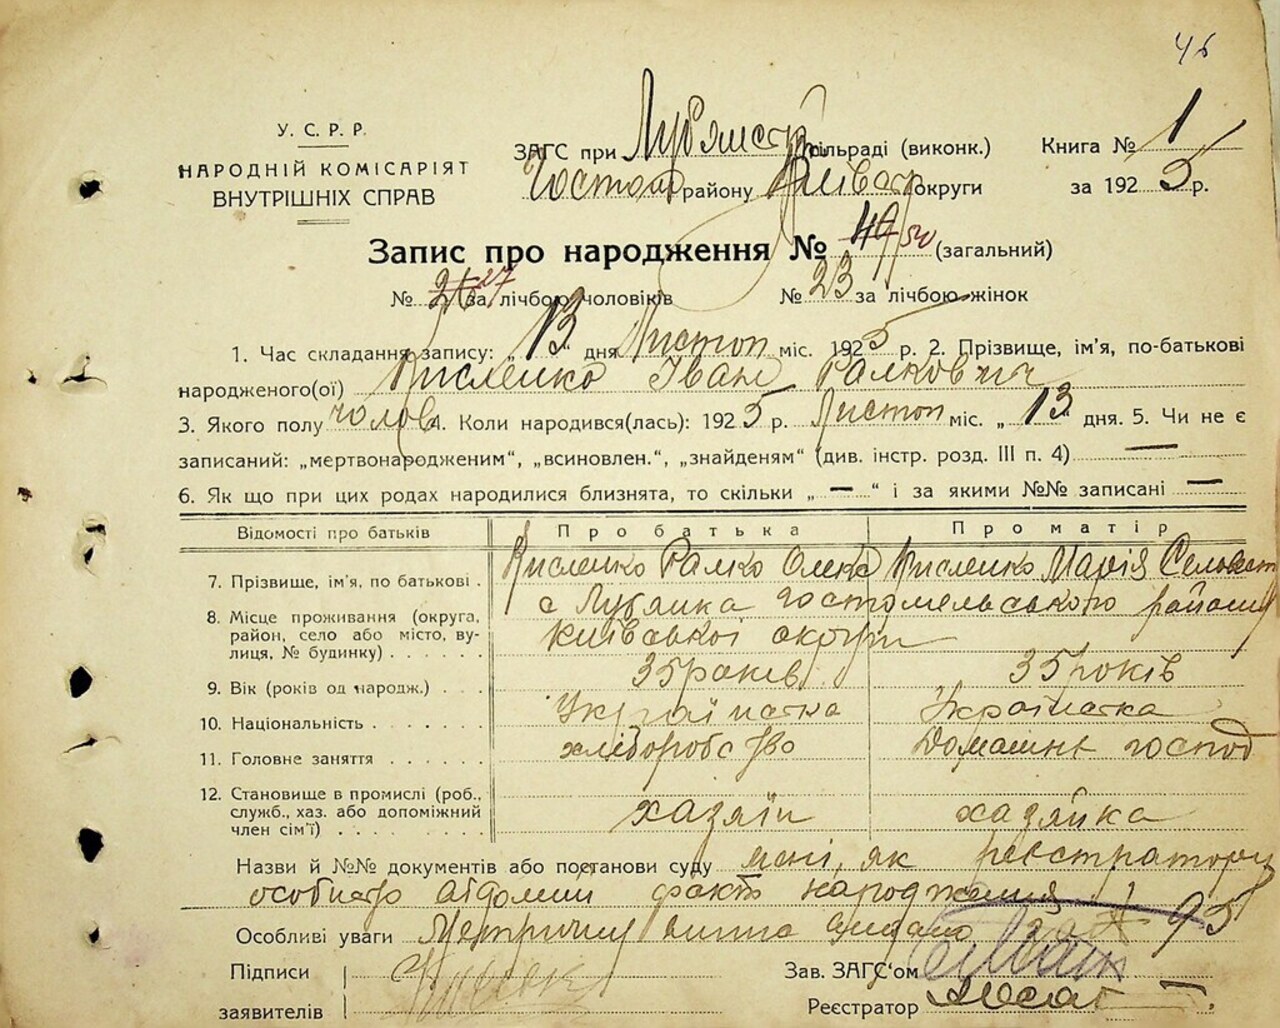 46
У. С. Р. Р.
НАРОДНІЙ КОМІСАРІЯТ
ВНУТРІШНІХ СПРАВ
ЗАГС при Лубянск сільраді (виконк.)
Гостом району Київськ округи
Книга № 1
за 1925 р.
Запис про народження № 49 50 (загальний)
№ 26 27 за лічбою чоловіків № 23 за лічбою жінок
1. Час складання запису: „ 13 “ дня Листоп міс. 1925 р. 2. Прізвище, ім’я, по-батькові
народженого(ої) Кисленко ІванРалкович
3. Якого полу чолов 4. Коли народився(лась): 1925 р. Листоп міс. „ 13 “ дня. 5. Чи не є
записаний: „мертвонародженим“, „всиновлен.“, „знайденям“ (див. інстр. розд. III п. 4) —
6. Як що при цих родах народилися близнята, то скільки „ — “ і за якими №№ записані —
Відомості про батьків Про батька Про матір
7. Прізвище, ім’я, по батькові . Кисленко Ралко Олек Кисленко Марія Сельвест
8. Місце проживання (округа, район, село або місто, вулиця, № будинку) . . . . . . с Лубянка гостомельського району
київської округи
9. Вік (років од народж.) . . . 35 років 35 років
10. Національність . . . . . . Українска Українска
11. Головне заняття . . . . . . хліборобство Домашнє господ
12. Становище в промислі (роб., служб., хаз. або допоміжний член сім’ї) . . . . . хазяїн хазяйка
Назви й №№ документів або постанови суду мені, як реєстратору
особисто відомий факт народження
Особливі уваги Метричну випис видано
Підписи
заявителів
Зав. ЗАГС‘ом
Реєстратор